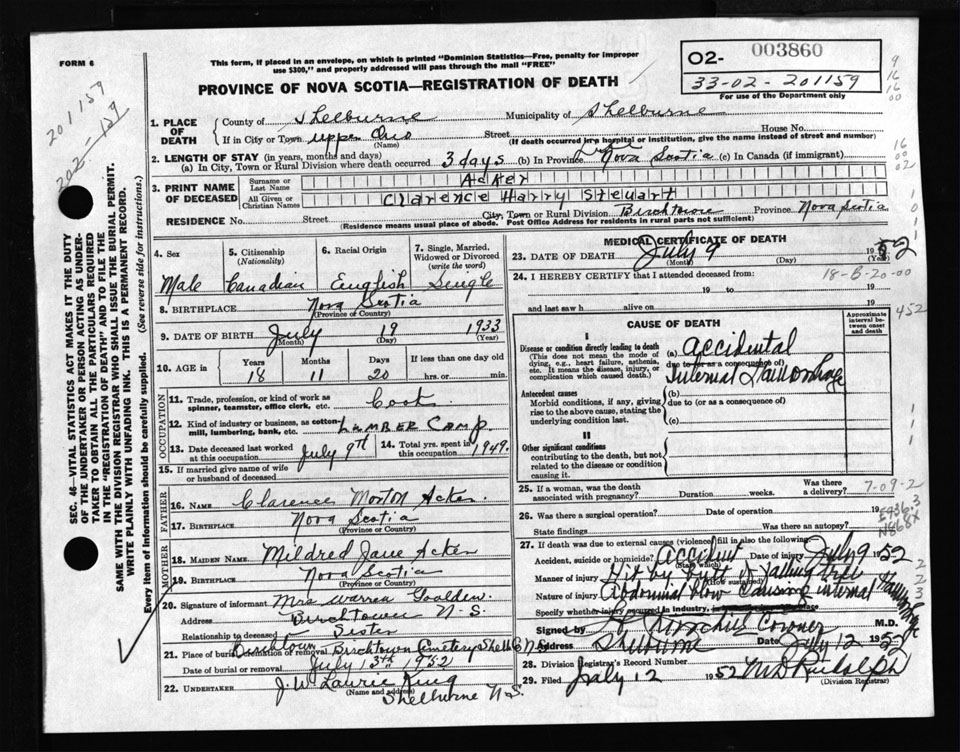 FORM 6
This form, if placed in an envelope, on which is printed "Dominion Statistics—Free, penalty for improper
use $300," and properly addressed will pass through the mail "FREE"
PROVINCE OF NOVA SCOTIA—REGISTRATION OF DEATH
003860
O2-
33-02-201159
For use of the Department only
201159
SEC. 46—VITAL STATISTICS ACT MAKES IT THE DUTY
OF THE UNDERTAKER OR PERSON ACTING AS UNDER-
TAKER TO OBTAIN ALL THE PARTICULARS REQUIRED
IN THE "REGISTRATION OF DEATH" AND TO FILE THE
SAME WITH THE DIVISION REGISTRAR WHO SHALL ISSUE THE BURIAL PERMIT.
WRITE PLAINLY WITH UNFADING INK. THIS IS A PERMANENT RECORD.
Every item of information should be carefully supplied. (See reverse side for instructions.)
1. PLACE OF DEATH
County of Shelburne Municipality of Shelburne
If in City or Town Upper Ohio (Name) Street House No.
(If death occurred in a hospital or institution, give the name instead of street and number)
2. LENGTH OF STAY (in years, months and days)
(a) In City, Town or Rural Division where death occurred 3 days (b) In Province Nova Scotia (c) In Canada (if immigrant)
3. PRINT NAME OF DECEASED
Surname or Last Name Acker
All Given or Christian Names Clarence Harry Stewart
RESIDENCE No. Street City, Town or Rural Division Birchtown Province Nova Scotia
(Residence means usual place of abode. Post Office Address for residents in rural parts not sufficient)
4. Sex Male
5. Citizenship (Nationality) Canadian
6. Racial Origin English
7. Single, Married, Widowed or Divorced (write the word) Single
8. BIRTHPLACE Nova Scotia
(Province or Country)
9. DATE OF BIRTH July 19 1933
(Month) (Day) (Year)
10. AGE in Years 18 Months 11 Days 20 If less than one day old hrs. or min.
OCCUPATION
11. Trade, profession, or kind of work as spinner, teamster, office clerk, etc. Cook
12. Kind of industry or business, as cotton-mill, lumbering, bank, etc. Lumber Camp.
13. Date deceased last worked at this occupation July 9th
14. Total yrs. spent in this occupation 1949.
15. If married give name of wife or husband of deceased
FATHER
16. NAME Clarence Morton Acker.
17. BIRTHPLACE Nova Scotia
(Province or Country)
MOTHER
18. MAIDEN NAME Mildred Jane Acker
19. BIRTHPLACE Nova Scotia
(Province or Country)
20. Signature of informant Mrs Warren Goolden.
Address Birchtown N-S.
Relationship to deceased Sister
21. Place of burial, cremation or removal Birchtown Cemetery Shelb N.S
Date of burial or removal July 13th 1952
22. UNDERTAKER J. W. Laurie King
(Name and Address)
Shelburne N S.
MEDICAL CERTIFICATE OF DEATH
23. DATE OF DEATH July 9 1952
(Month) (Day) (Year)
18-B-20-00
24. I HEREBY CERTIFY that I attended deceased from:
19 to 19
and last saw h alive on 19
452
CAUSE OF DEATH
Approximate interval between onset and death
I
Disease or condition directly leading to death
(This does not mean the mode of dying, e.g., heart failure, asthenia, etc. It means the disease, injury, or complication which caused death.)
(a) Accidental
due to (or as a consequence of)
Internal Haemorrhage
Antecedent causes
Morbid conditions, if any, giving rise to the above cause, stating the underlying condition last.
(b)
due to (or as a consequence of)
(c)
II
Other significant conditions
contributing to the death, but not related to the disease or condition causing it.
25. If a woman, was the death associated with pregnancy? Duration weeks. Was there a delivery?
7-09-2
26. Was there a surgical operation? Date of operation 19
State findings Was there an autopsy?
E936.3
N868X
27. If death was due to external causes (violence) fill in also the following:
Accident, suicide or homicide? Accident Date of injury July 9 1952
(State which)
Manner of injury Hit by butt of falling tree
(How sustained)
Nature of injury Abdominal blow causing internal Haemorrhage
Specify whether injury occurred in industry,
Signed by Coroner M.D.
Address Shelburne Date July 12 1952
28. Division Registrar's Record Number
29. Filed July 12 1952 M D Rudolph
(Division Registrar)